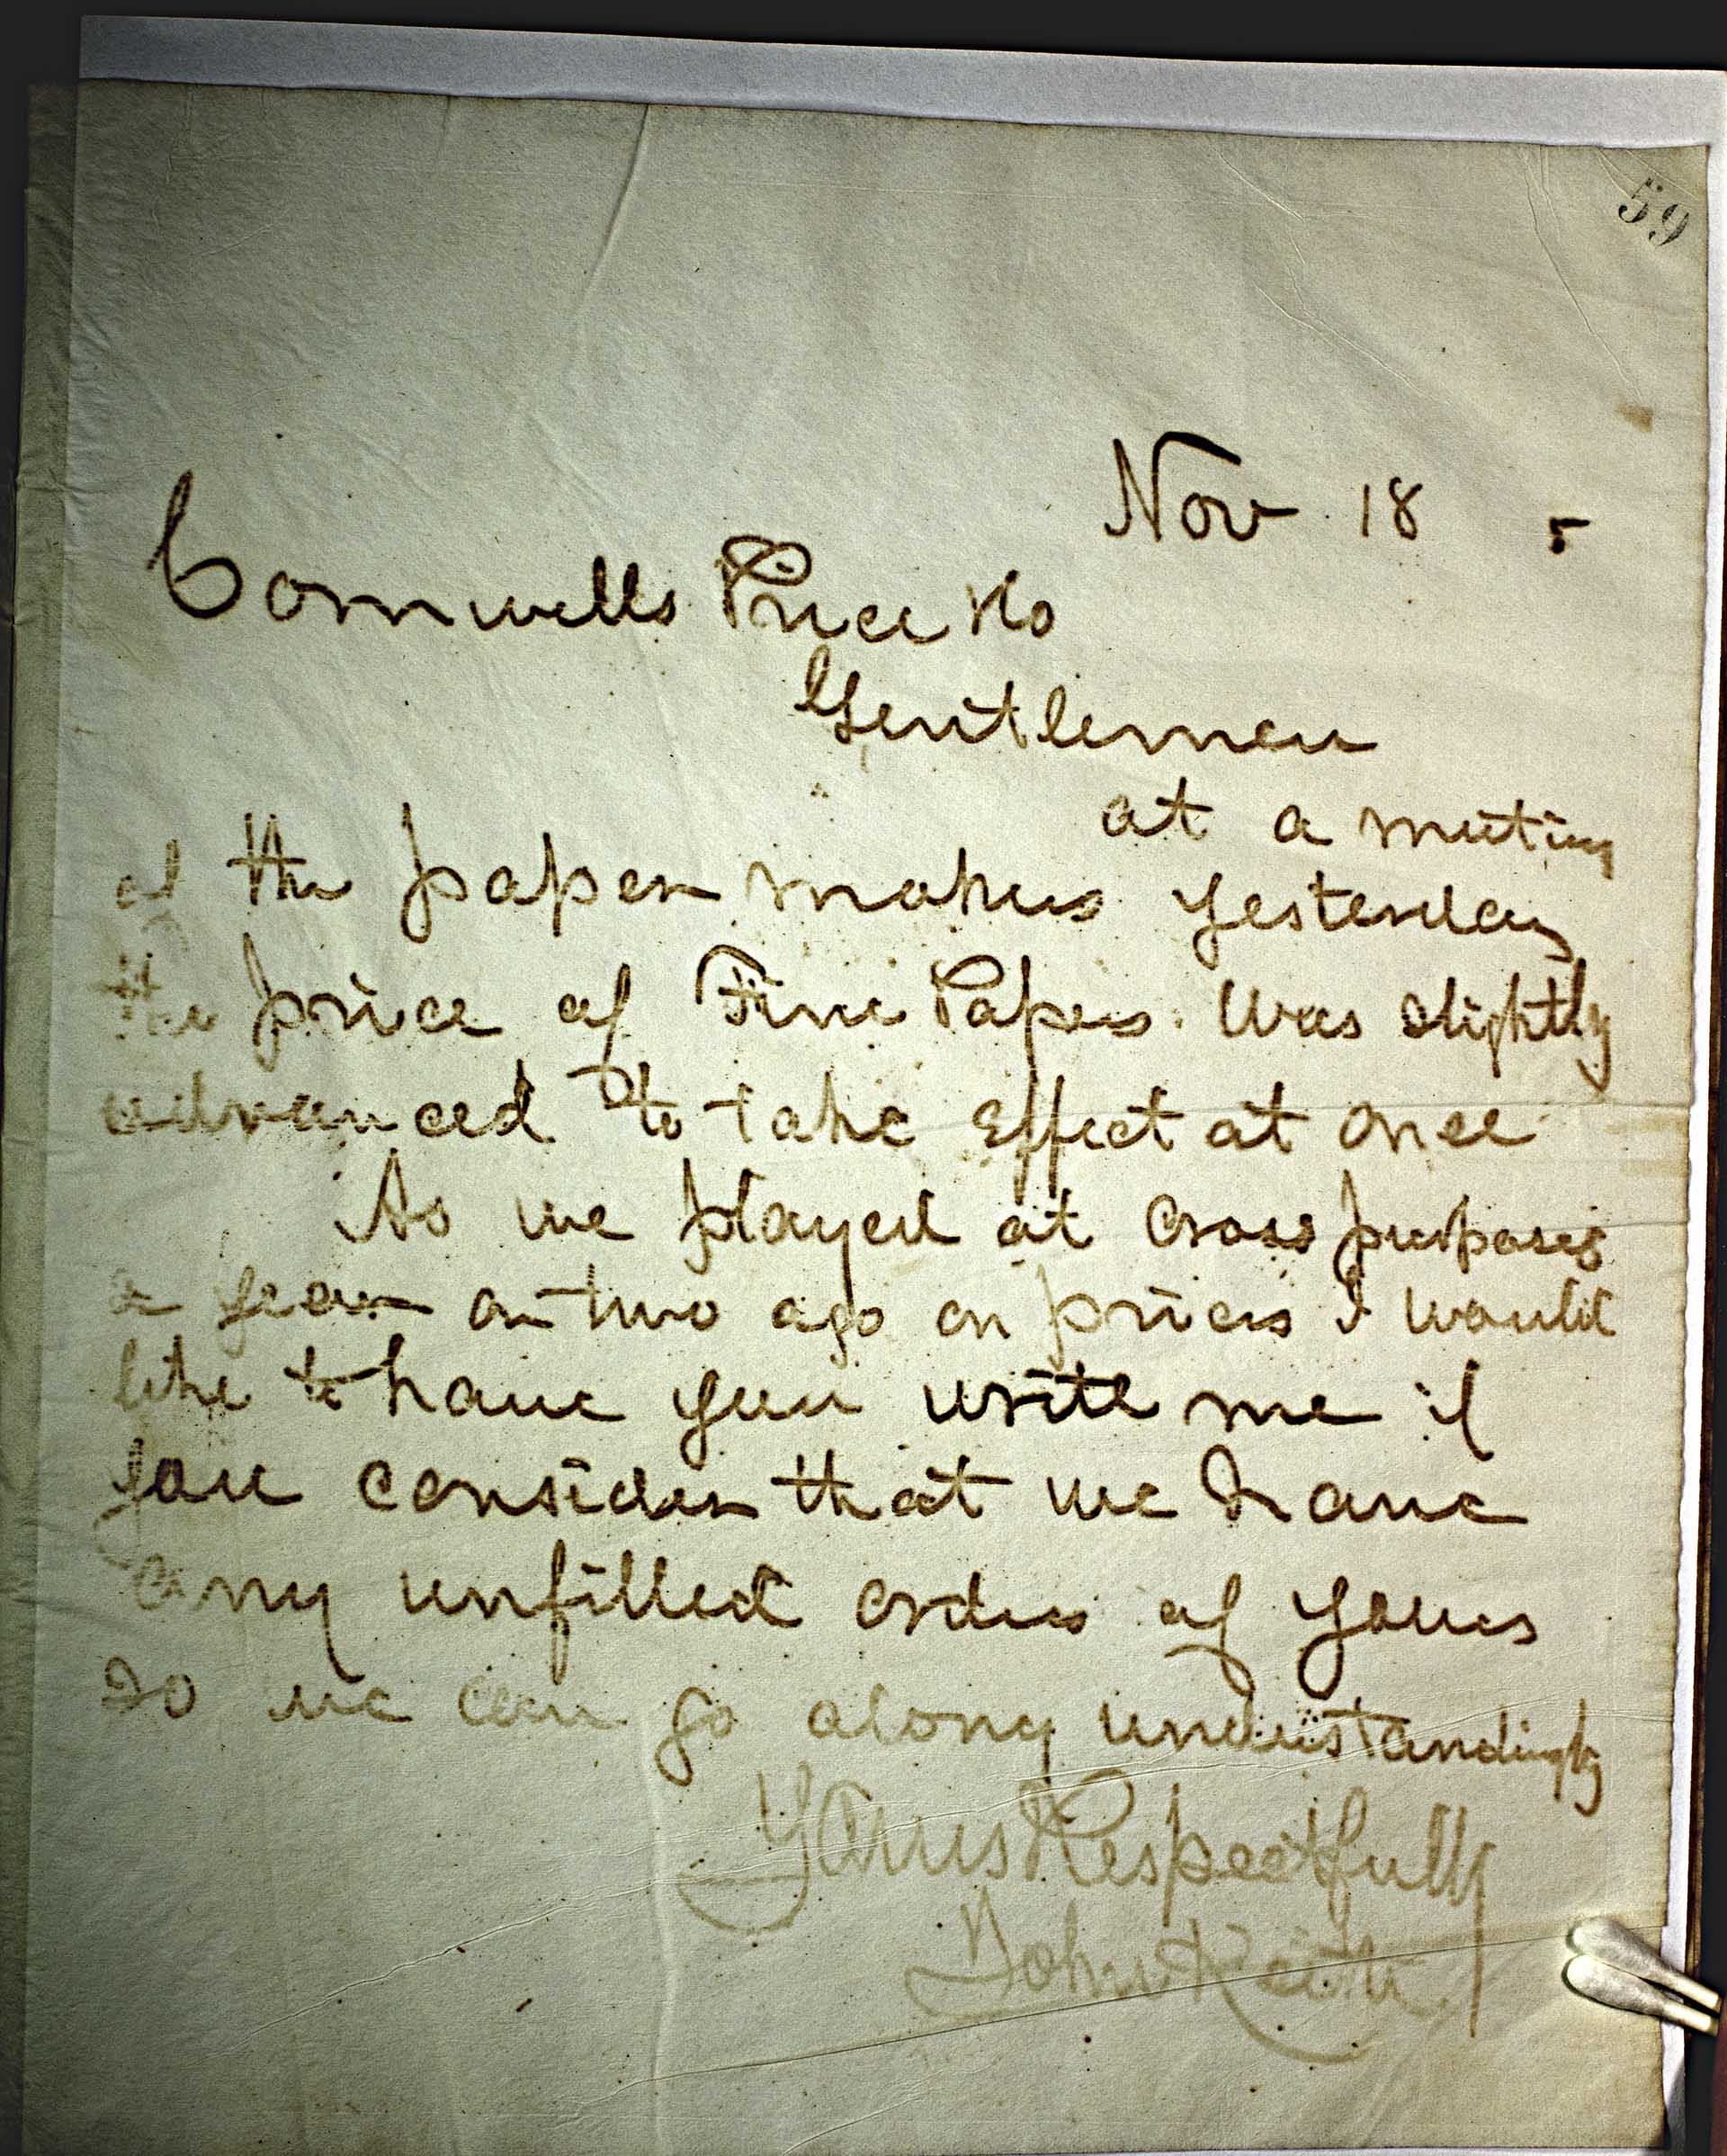 59
Nov 18 5
Cornwells Price & Co
Gentlemen
at a meeting
of the paper makers yesterday
the price of Fine Papers was slightly
advanced to take effect at once
As we played at cross purposes
a year or two ago on prices I would
like to have you write me if
you consider that we have
any unfilled orders of yours
so we can go along understandingly
Yours Respectfully
John Keith